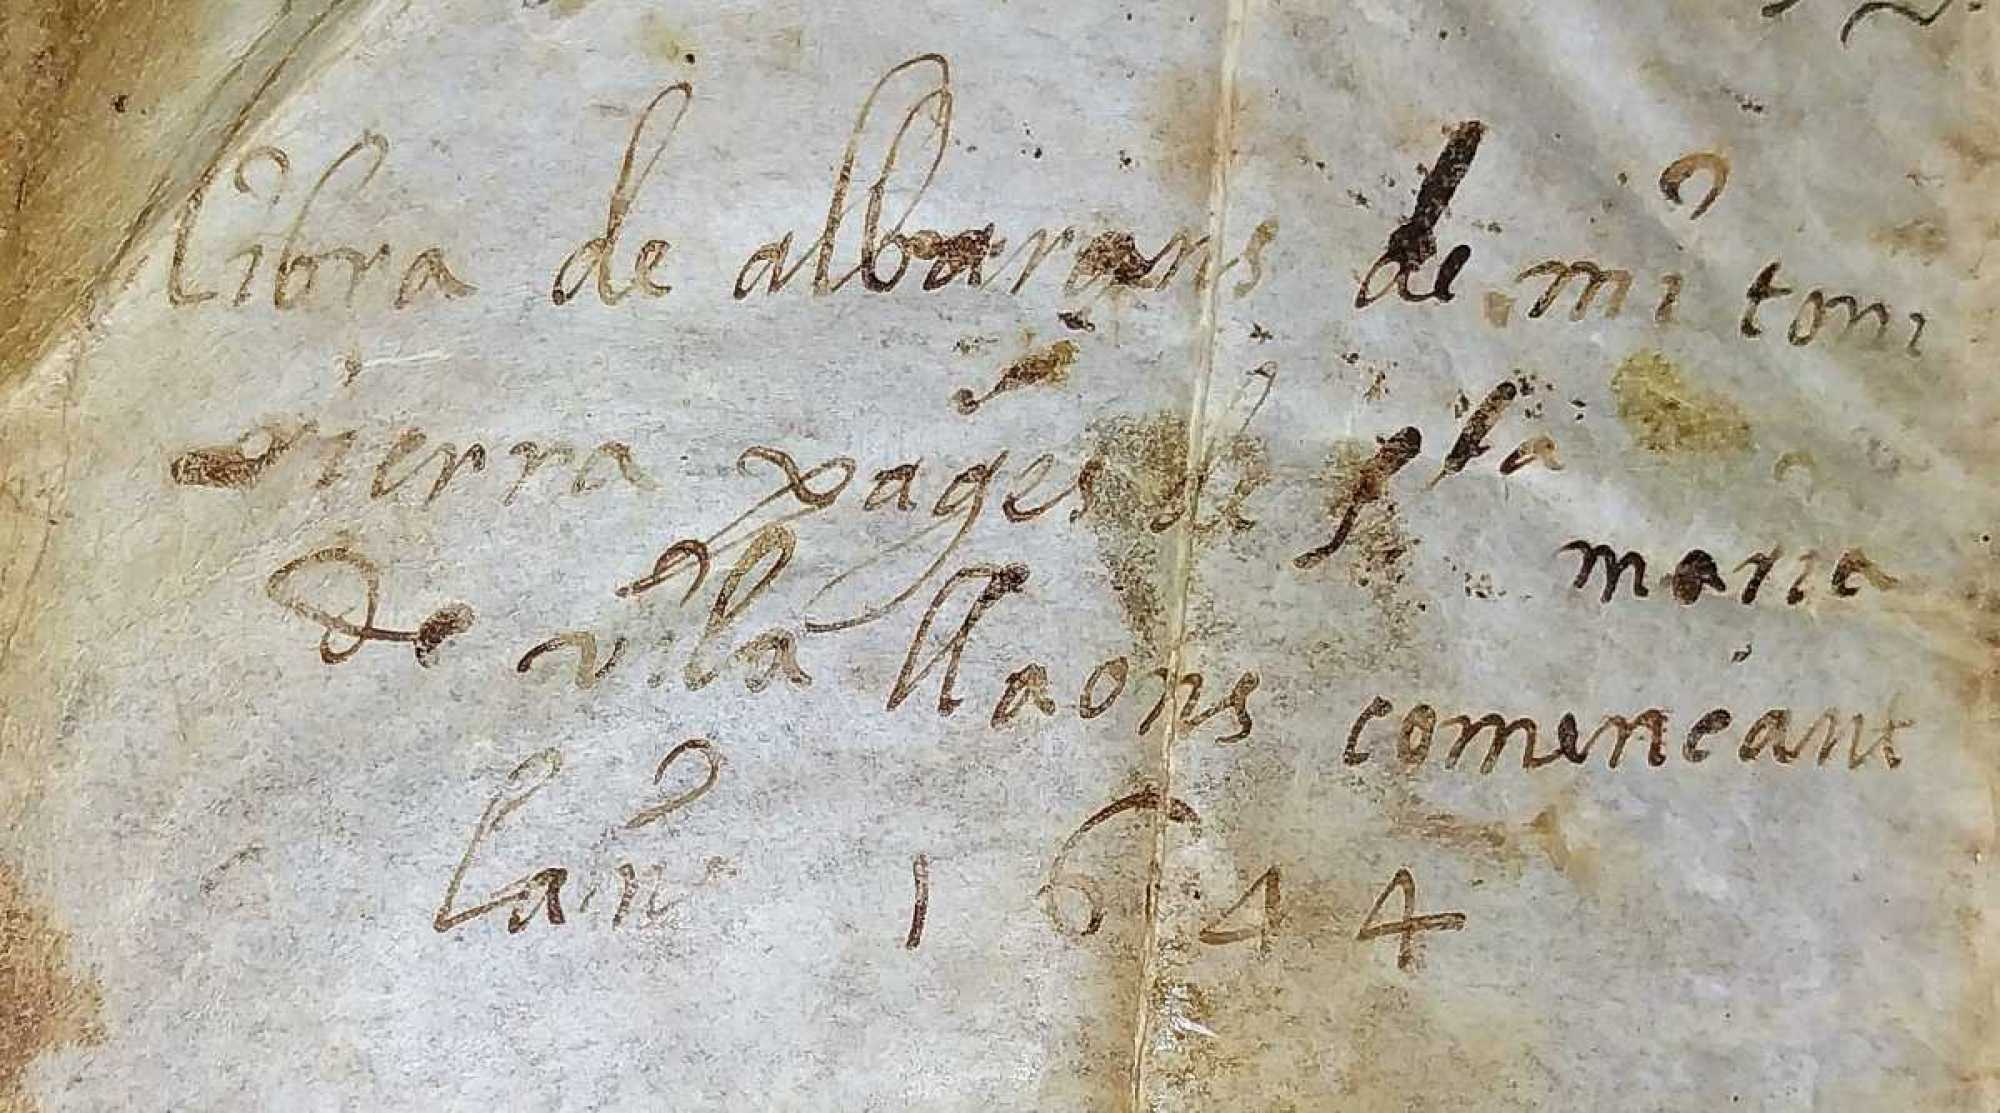 libra de albarans de mi toni
vierra pages de sta maria
de vila llaons comencant
lan 1644